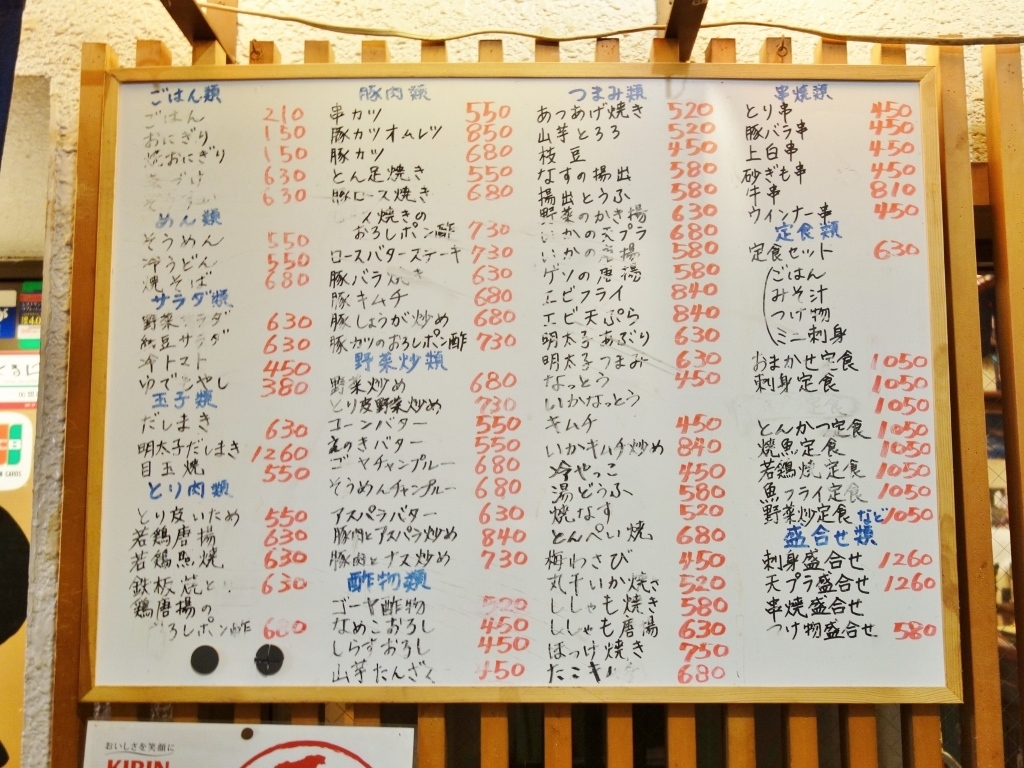 ごはん類
ごはん 210
おにぎり 150
焼おにぎり 150
630
630
めん類
そうめん 550
冷うどん 550
焼そば 680
サラダ類
野菜サラダ 630
納豆サラダ 630
冷トマト 450
ゆでもやし 380
玉子類
だしまき 630
明太子だしまき 1260
目玉焼 550
とり肉類
とり皮いため 550
若鶏唐揚 630
若鶏魚焼 630
鉄板焼と 630
鶏唐揚の
おろしポン酢
豚肉類
串カツ 550
豚カツオムレツ 850
豚カツ 680
とん足焼き 550
豚ロース焼き 680
ース焼きの
おろしポン酢 730
ロースバターステーキ 730
豚バラ焼き 630
豚キムチ 680
豚しょうが炒め 680
豚カツのおろしポン酢 730
野菜炒類
野菜炒め 680
とり皮野菜炒め 730
コーンバター 550
えのきバター 550
ゴーヤチャンプルー 680
そうめんチャンプルー 680
アスパラバター 630
豚肉とアスパラ炒め 840
豚肉とナス炒め 730
酢物類
ゴーヤ酢物 520
なめこおろし 450
しらすおろし 450
山芋たんざく 450
つまみ類
あつあげ焼き 520
山芋とろろ 520
枝豆 450
なすの揚出 580
揚出とうふ 580
野菜のかき揚 630
いかの天プラ 680
いかの唐揚 580
ゲソの唐揚 580
エビフライ 840
エビ天ぷら 840
明太子あぶり 630
明太子つまみ 630
なっとう 450
いかなっとう
キムチ 450
いかキムチ炒め 840
冷やっこ 450
湯どうふ 580
焼なす 520
とんぺい焼 680
梅わさび 450
丸干いか焼き 520
ししゃも焼き 580
ししゃも唐揚 630
ほっけ焼き 750
たこキ 680
串焼類
とり串 450
豚バラ串 450
上白串 450
砂ぎも串 450
牛串 810
ウィンナー串 450
定食類
定食セット 630
ごはん
みそ汁
つけ物
ミニ刺身
おまかせ定食 1050
刺身定食 1050
定食 1050
とんかつ定食 1050
焼魚定食 1050
若鶏焼定食 1050
魚フライ定食 1050
野菜炒定食など 1050
盛合せ類
刺身盛合せ 1260
天プラ盛合せ 1260
串焼盛合せ
つけ物盛合せ 580
おいしさを笑顔に
KIRIN